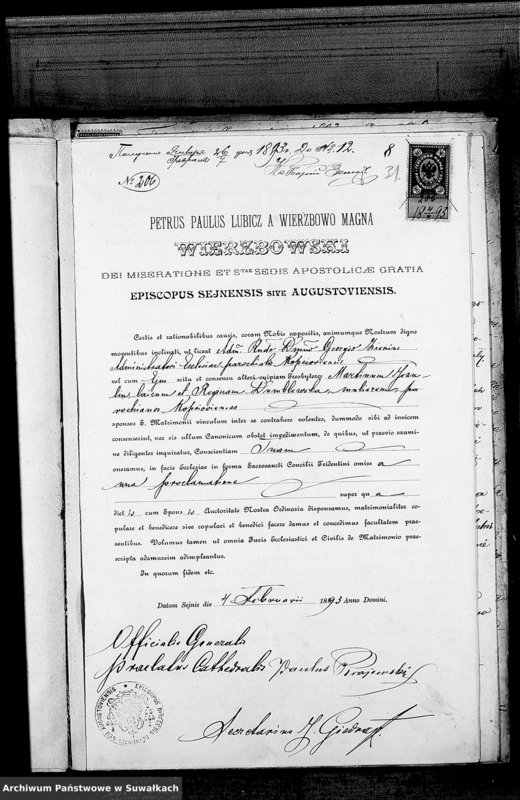 Получено Января 26 дня 1893 г. До № 12.
Февраля 7
8
31.
№ 206
PETRUS PAULUS LUBICZ A WIERZBOWO MAGNA
WIERZBOWSKI
DEI MISERATIONE ET STAE SEDIS APOSTOLICÆ GRATIA
EPISCOPUS SEJNENSIS SIVE AUGUSTOVIENSIS.
Certis et rationabilibus causis, coram Nobis expositis, animumque Nostrum digne
moventibus inclinati, ut liceat Adm. Rndo Dnno Georgio
Administratori Ecclesiae parochialis Kopciovensis
vel cum Ejus scitu et consensu alteri cuipiam Presbytero: Martinum
laicum et Reginam mulierem pa-
rochianos Kopciovienses
sponsos S. Matrimonii vinculum inter se contrahere volentes, dummodo sibi ad invicem
consenserint, nec eis ullum Canonicum obstet impedimentum, de quibus, ut praevio exami-
ne diligenter inquiratur, Conscientiam Tuam
oneramus, in facie Ecclesiae in forma Sacrosancti Concilii Tridentini omiss a
una proclamatione
super qu a
dict is cum Spons is Auctoritate Nostra Ordinaria dispensamus, matrimonialiter co-
pulare et benedicere sive copulari et benedici facere damus et concedimus facultatem prae-
sentibus. Volumus tamen ut omnia Juris Ecclesiastici et Civilis de Matrimonio prae-
scripta adamussim adimpleantur.
In quorum fidem etc.
Datum Sejnis die 4 Februarii 1893 Anno Domini.
Officialis Generalis
Praelatus Cathedralis Paulus Krajewski
Secretarius J. Giedra
Archiwum Państwowe w Suwałkach